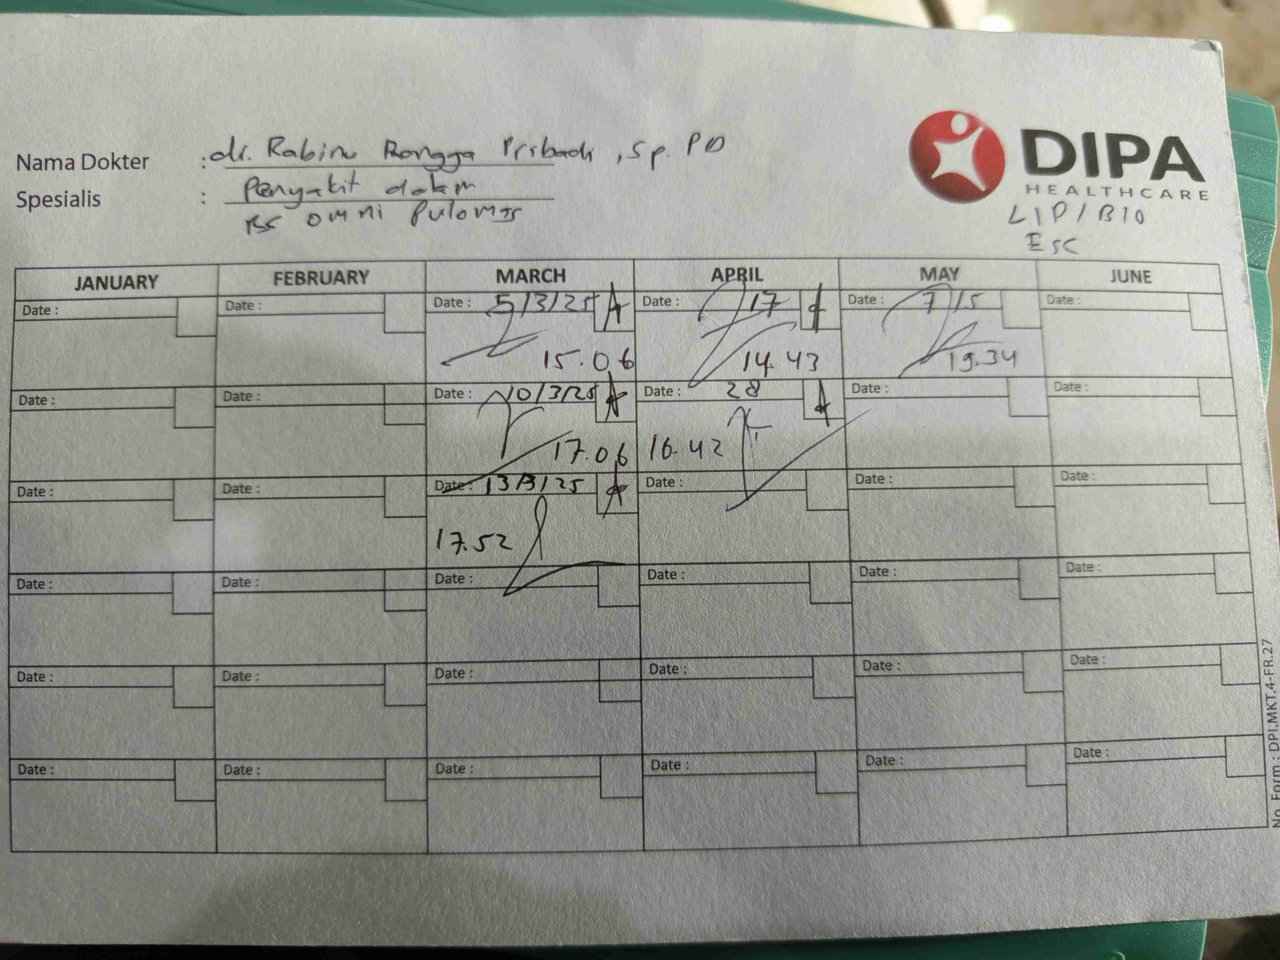 DIPA
HEALTHCARE
LIP/BIO
Esc
Nama Dokter : dr. Rabinu Rangga Pribadi, Sp. PD
Spesialis : Penyakit dalam
RS omni Pulomas
JANUARY FEBRUARY MARCH APRIL MAY JUNE
Date : Date : Date : 5/3/25 Date : 17 Date : 7/5 Date :
15.06 14.43 19.34
Date : Date : Date : 10/3/25 Date : 28 Date : Date :
17.06 16.42
Date : Date : Date : 13/3/25 Date : Date : Date :
17.52
Date : Date : Date : Date : Date : Date :
Date : Date : Date : Date : Date : Date :
Date : Date : Date : Date : Date : Date :
No. Form : DPI.MKT.4-FR.27